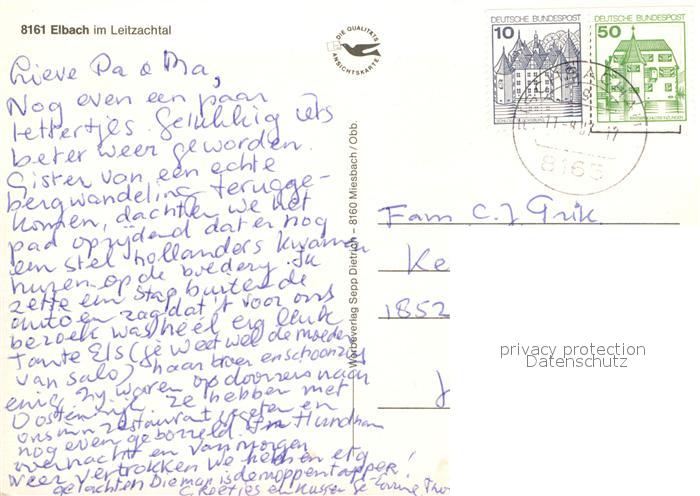 8161 Elbach im Leitzachtal
DIE QUALITÄTS
ANSICHTSKARTE
DEUTSCHE BUNDESPOST
10
DEUTSCHE BUNDESPOST
50
8165
Lieve Pa & Ma,
Nog even een paar
lettertjes. Gelukkig iets
beter weer geworden.
Gister van een echte
bergwandeling terugge-
komen, dachten we het
pad oprijdend dat er nog
een stel hollanders kwamen
huren op de boederij. Ik
zette een stap buiten de
auto en zag dat 't voor ons
bezoek was heel erg leuk
Tante Els (je weet wel de moeder
van Salo) haar broer en schoonzus
enig, zij waren op doorreis naar
Oostenrijk ze hebben met
ons in restaurant gegeten en
nog even geborreld. In Hundham
overnacht en vanmorgen
weer vertrokken we hebben erg
gelachten Dieman is de moppentapper!
Groetjes en kussen
Werbeverlag Sepp Dietrich – 8160 Miesbach/Obb.
Fam C.J. Grik
Ke
1852
privacy protection
Datenschutz